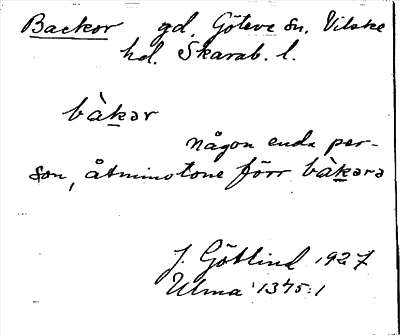 Backor gd. Göteve sn. Vilske
hd. Skarab. l.
bàkər
någon enda per-
son, åtminstone förr bàkərə
J. Götlind 1927
Ulma 1375:1